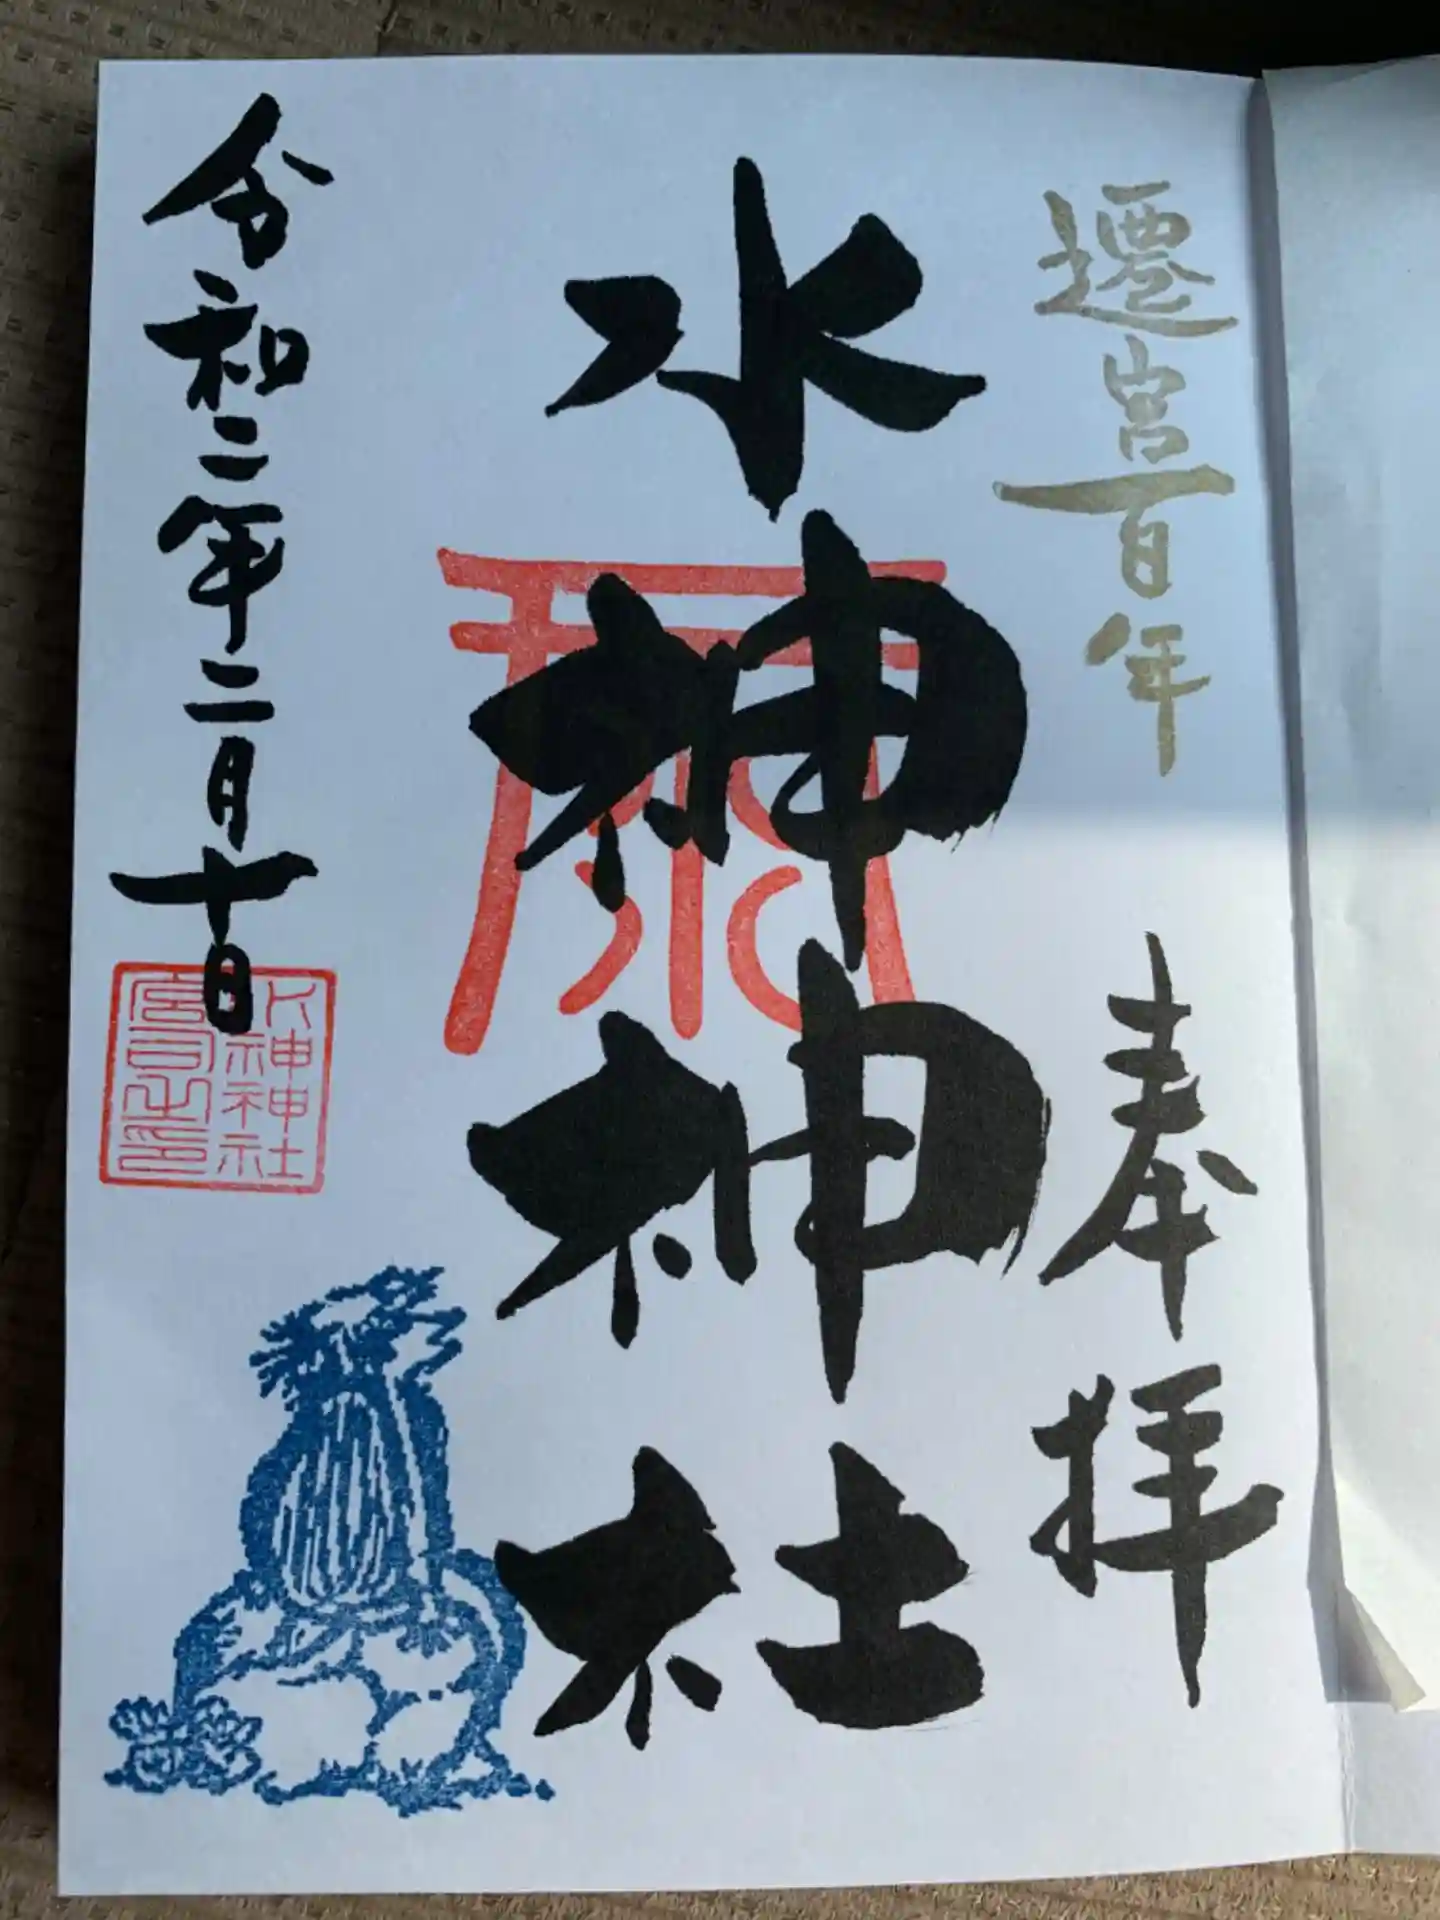 遷宮百年
奉拝
水神神社
令和二年二月十日
水神神社
宮司之印